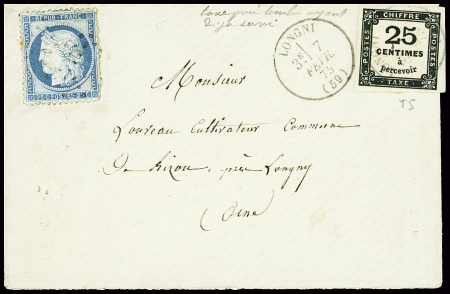 taxe
déjà servi
REPUB. FRANC.
25 POSTES 25
LONGNI
3E 7
FEVR.
73
(59)
CHIFFRE
POSTES
25
CENTIMES
à
percevoir
POSTES
TAXE
T5
Monsieur
Louveau Cultivateur Commune
De Bizou, près Longny
Orne